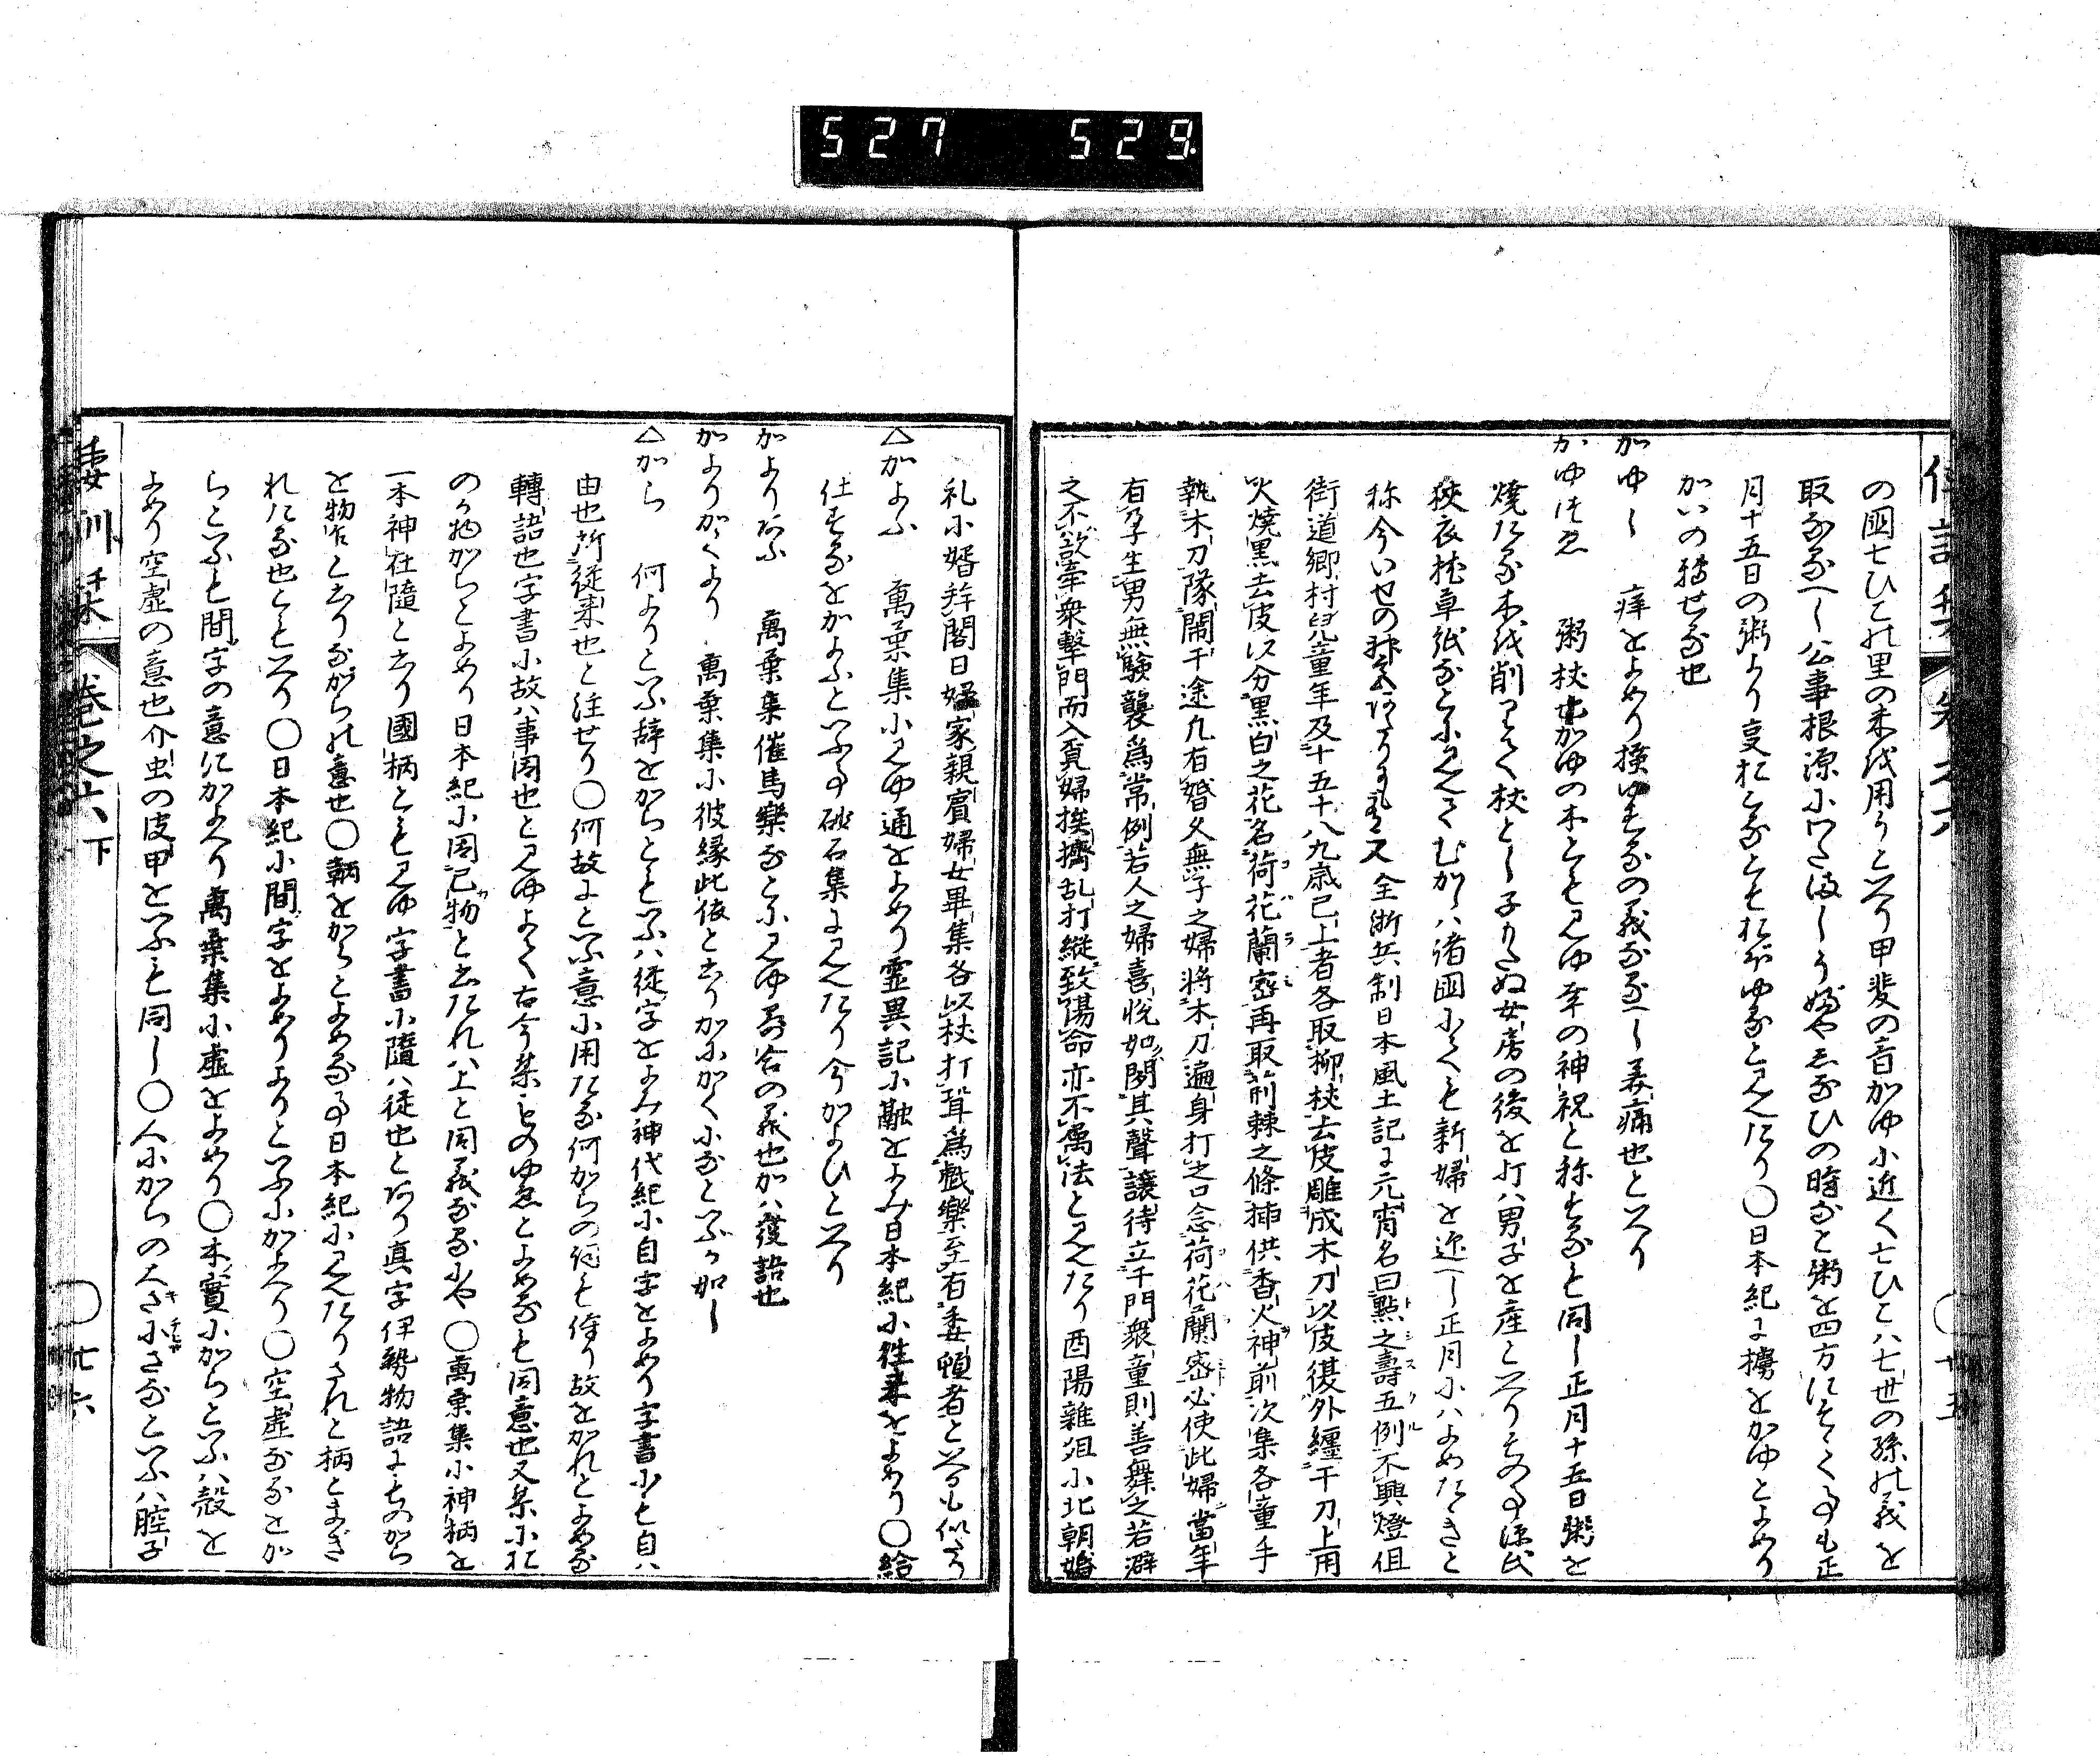 527 529
の國七ひこの里の米を用うといへり甲斐の音かゆに近く七ひこは七世の孫の義を
取なるへし公事根源にわたましうぶやしなひの時なと粥を四方にそゝく事も正
月十五日の粥より受たることもおぼゆると見えたり○日本紀に擄をかゆとよめり
かいの轉せる也
かゆし 痒をよめり掻ゆるの義なるへし 痛也といへり
かゆづゑ 粥杖也かゆの木とも見ゆ幸の神祝と称するも同し正月十五日粥を
燒たる木を削りて杖とし子もたぬ女房の後を打ハ男子を産といへりその事源氏
狹衣枕草紙なとに見えてむかしハ諸國にても新婦を迎へし正月にハよめたゝきと
称今いせの 又全浙兵制日本風土記に元宵名曰點之壽五例不興燈但
街道鄉村兒童年及十五十八九歳已上者各取柳枝去皮雕成木刀以皮復外纏于刀上用
火燒黒去皮以分黒白之花名荷花蘭密再取荊棘之條插供香火神前次集各童手
執木刀隊閙于途凡有婚久無子之婦將木刀遍身打之口念荷花蘭密必使此婦當年
有孕生男無験襲爲常例若人之婦喜悦如聞其聲譲待立于門衆童則善舞之若避
之不悦牽衆擊門而入覓婦挨擠乱打縱致傷命亦不屬法と見えたり酉陽雜俎に北朝婚
礼に婿拜閣日婦家親賓婦女畢集各以杖打聟爲戯樂至有委頓者といへるも似たり
△かよふ 萬葉集に見ゆ通をよめり霊異記に融をよみ日本紀に往來をよめり○給
仕するをかよふといふ事砂石集に見えたり今かよひといへり
かよりあふ 萬葉集催馬樂なとに見ゆ寄合の義也かハ發語也
かよりかくより 萬葉集に彼縁此依と書りかにかくになといふか如し
△から 何よりといふ辞をからともいふハ従字をよみ神代紀に自字をよめり字書にも自ハ
由也所従来也と注せり○何故にといふ意に用たる何からの詞も侍り故をかれとよめる
轉語也字書に故ハ事因也と見ゆよて古今集ものゆゑとよめるも同意也又集にお
のか物からとよめり日本紀に因己物と書たれハ上と同義なるにや○萬葉集に神柄を
一本神在隨と書り國柄とも見ゆ字書に隨ハ従也とあり真字伊勢物語にものから
を物乍と書りながらの意也○鞆をからとよめる事日本紀に見えたりされと柄とまぎ
れたる也ともいへり○日本紀に間字をよめりよりといふにかよへり○空虚なるをか
らといふも間字の意にかよへり萬葉集に虚をよめり○木實にからといふハ殻を
よめり空虚の意也介虫の皮甲をいふも同し○人にからの大さ小さなといふハ腔子
倭訓栞 巻之六下 ○七十六